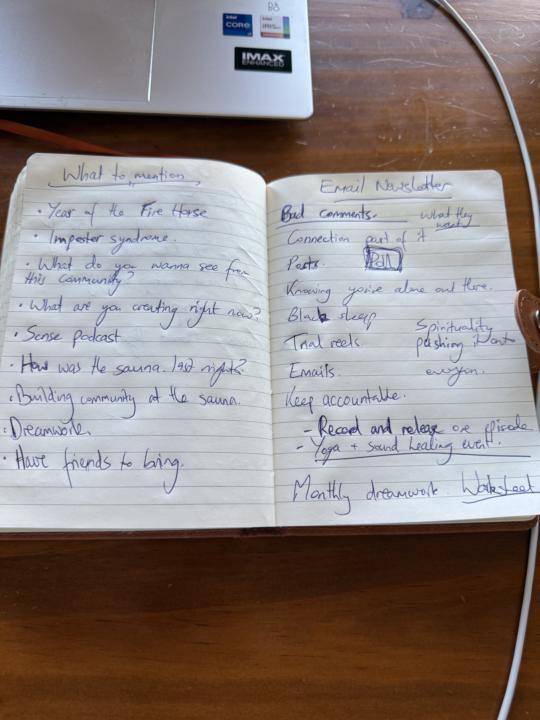 intel
CORE
i7
intel
IMAX
ENHANCED
What to mention
• Year of the Fire Horse
• Imposter syndrome.
• What do you wanna see from
this community?
• What are you creating right now?
• Sense podcast
• How was the sauna last night?
• Building community at the sauna.
• Dreamwork.
• Have friends to bring.
Email Newsletter
Bad comments. what they
Connection part of it
Posts. Poll
Knowing you're alone out there.
Black sleep
Trial reels. Spirituality
pushing it onto
Emails. everyon.
Keep accountable.
- Record and release one episode
- Yoga + Sound healing event.
Monthly dreamwork. Worksheet